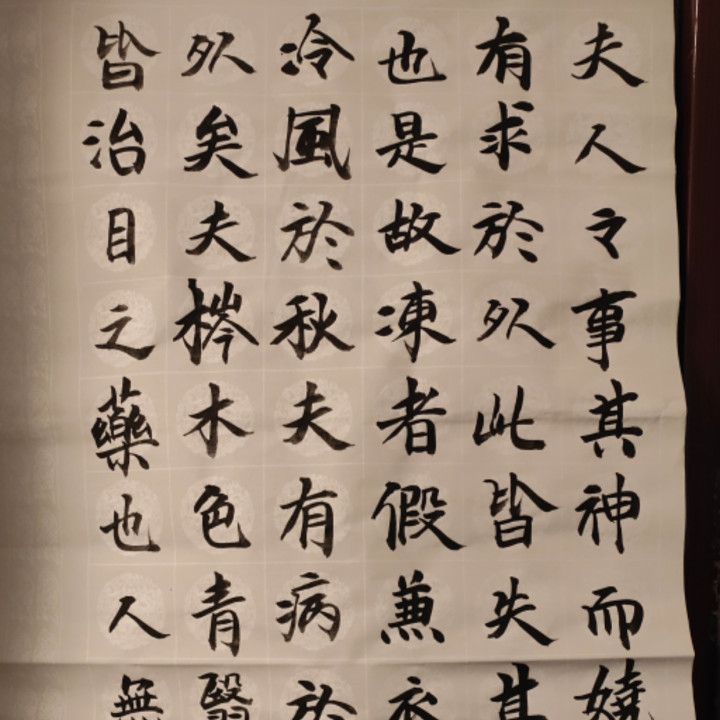 夫人之事其神而嬈
有求於外此皆失其
也是故凍者假兼衣
冷風於秋夫有病於
外矣夫梣木色青翳
皆治目之藥也人無